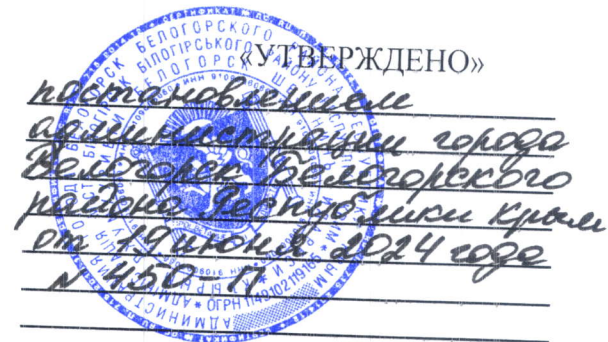 «УТВЕРЖДЕНО»
постановлением
администрации города
Белогорск Белогорского
района Республики Крым
от 19 июня 2024 года
N 450-П